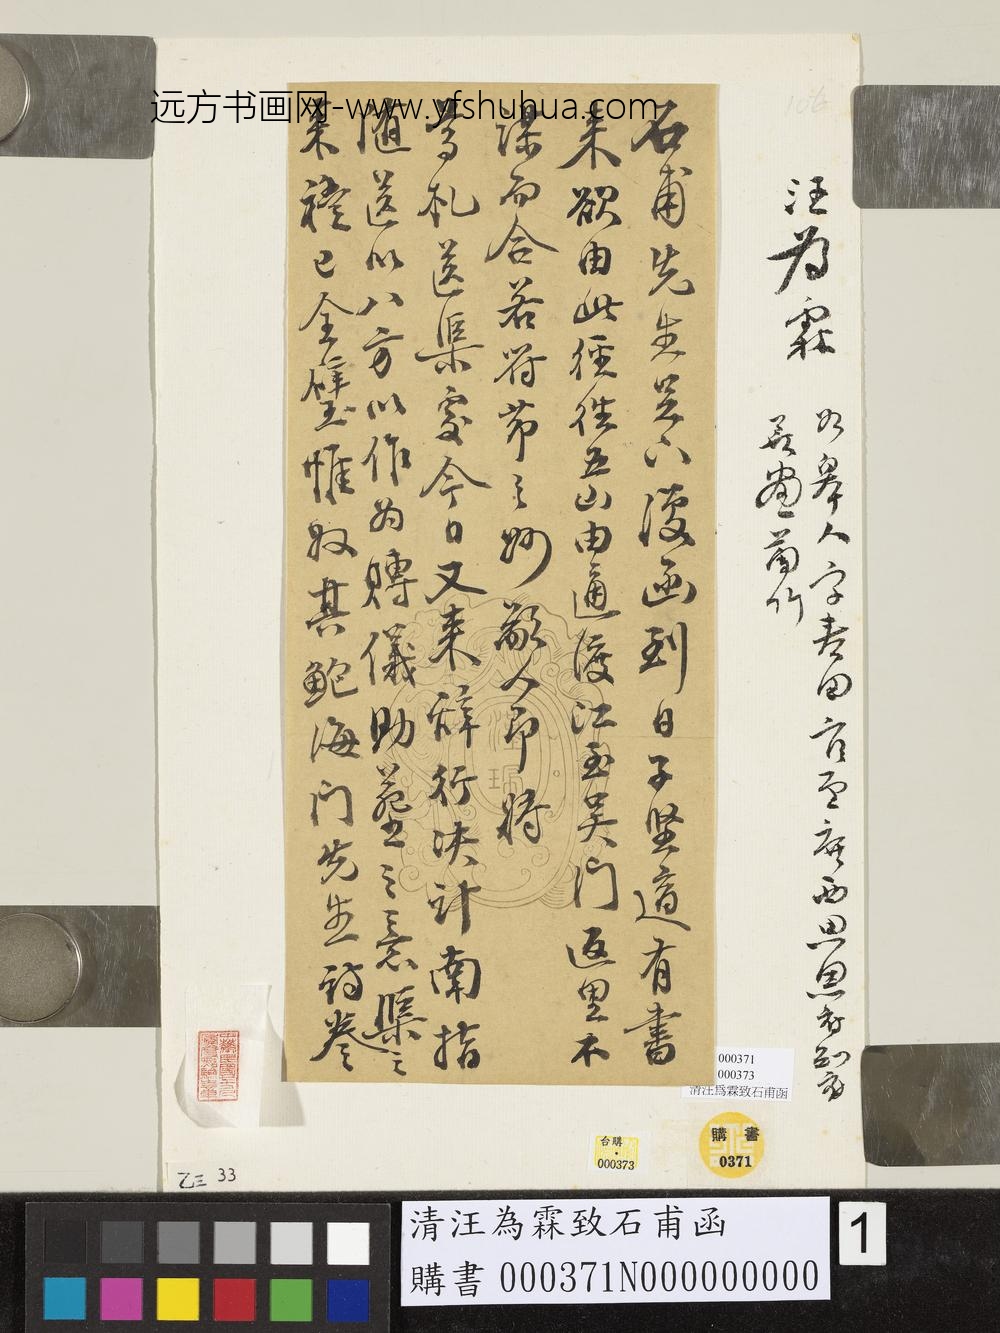 远方书画网-www.yfshuhua.com
106
汪為霖
如皋人字春田官至廣西思恩府知府
善畫蘭竹
石甫先生足下復函到日子堅適有書
來欲由此徑往五山由通渡江至吴門返里不
謀而合若符節之妙敝人即將
尊札送渠處今日又来辞行决計南指
随送以八方以作為賻儀助葬之意渠之
来禮已全璧惟收其鮑海门先生詩卷
000371
000373
清汪為霖致石甫函
台購
000373
購書
0371
乙三 33
清汪為霖致石甫函
購書000371N000000000
1